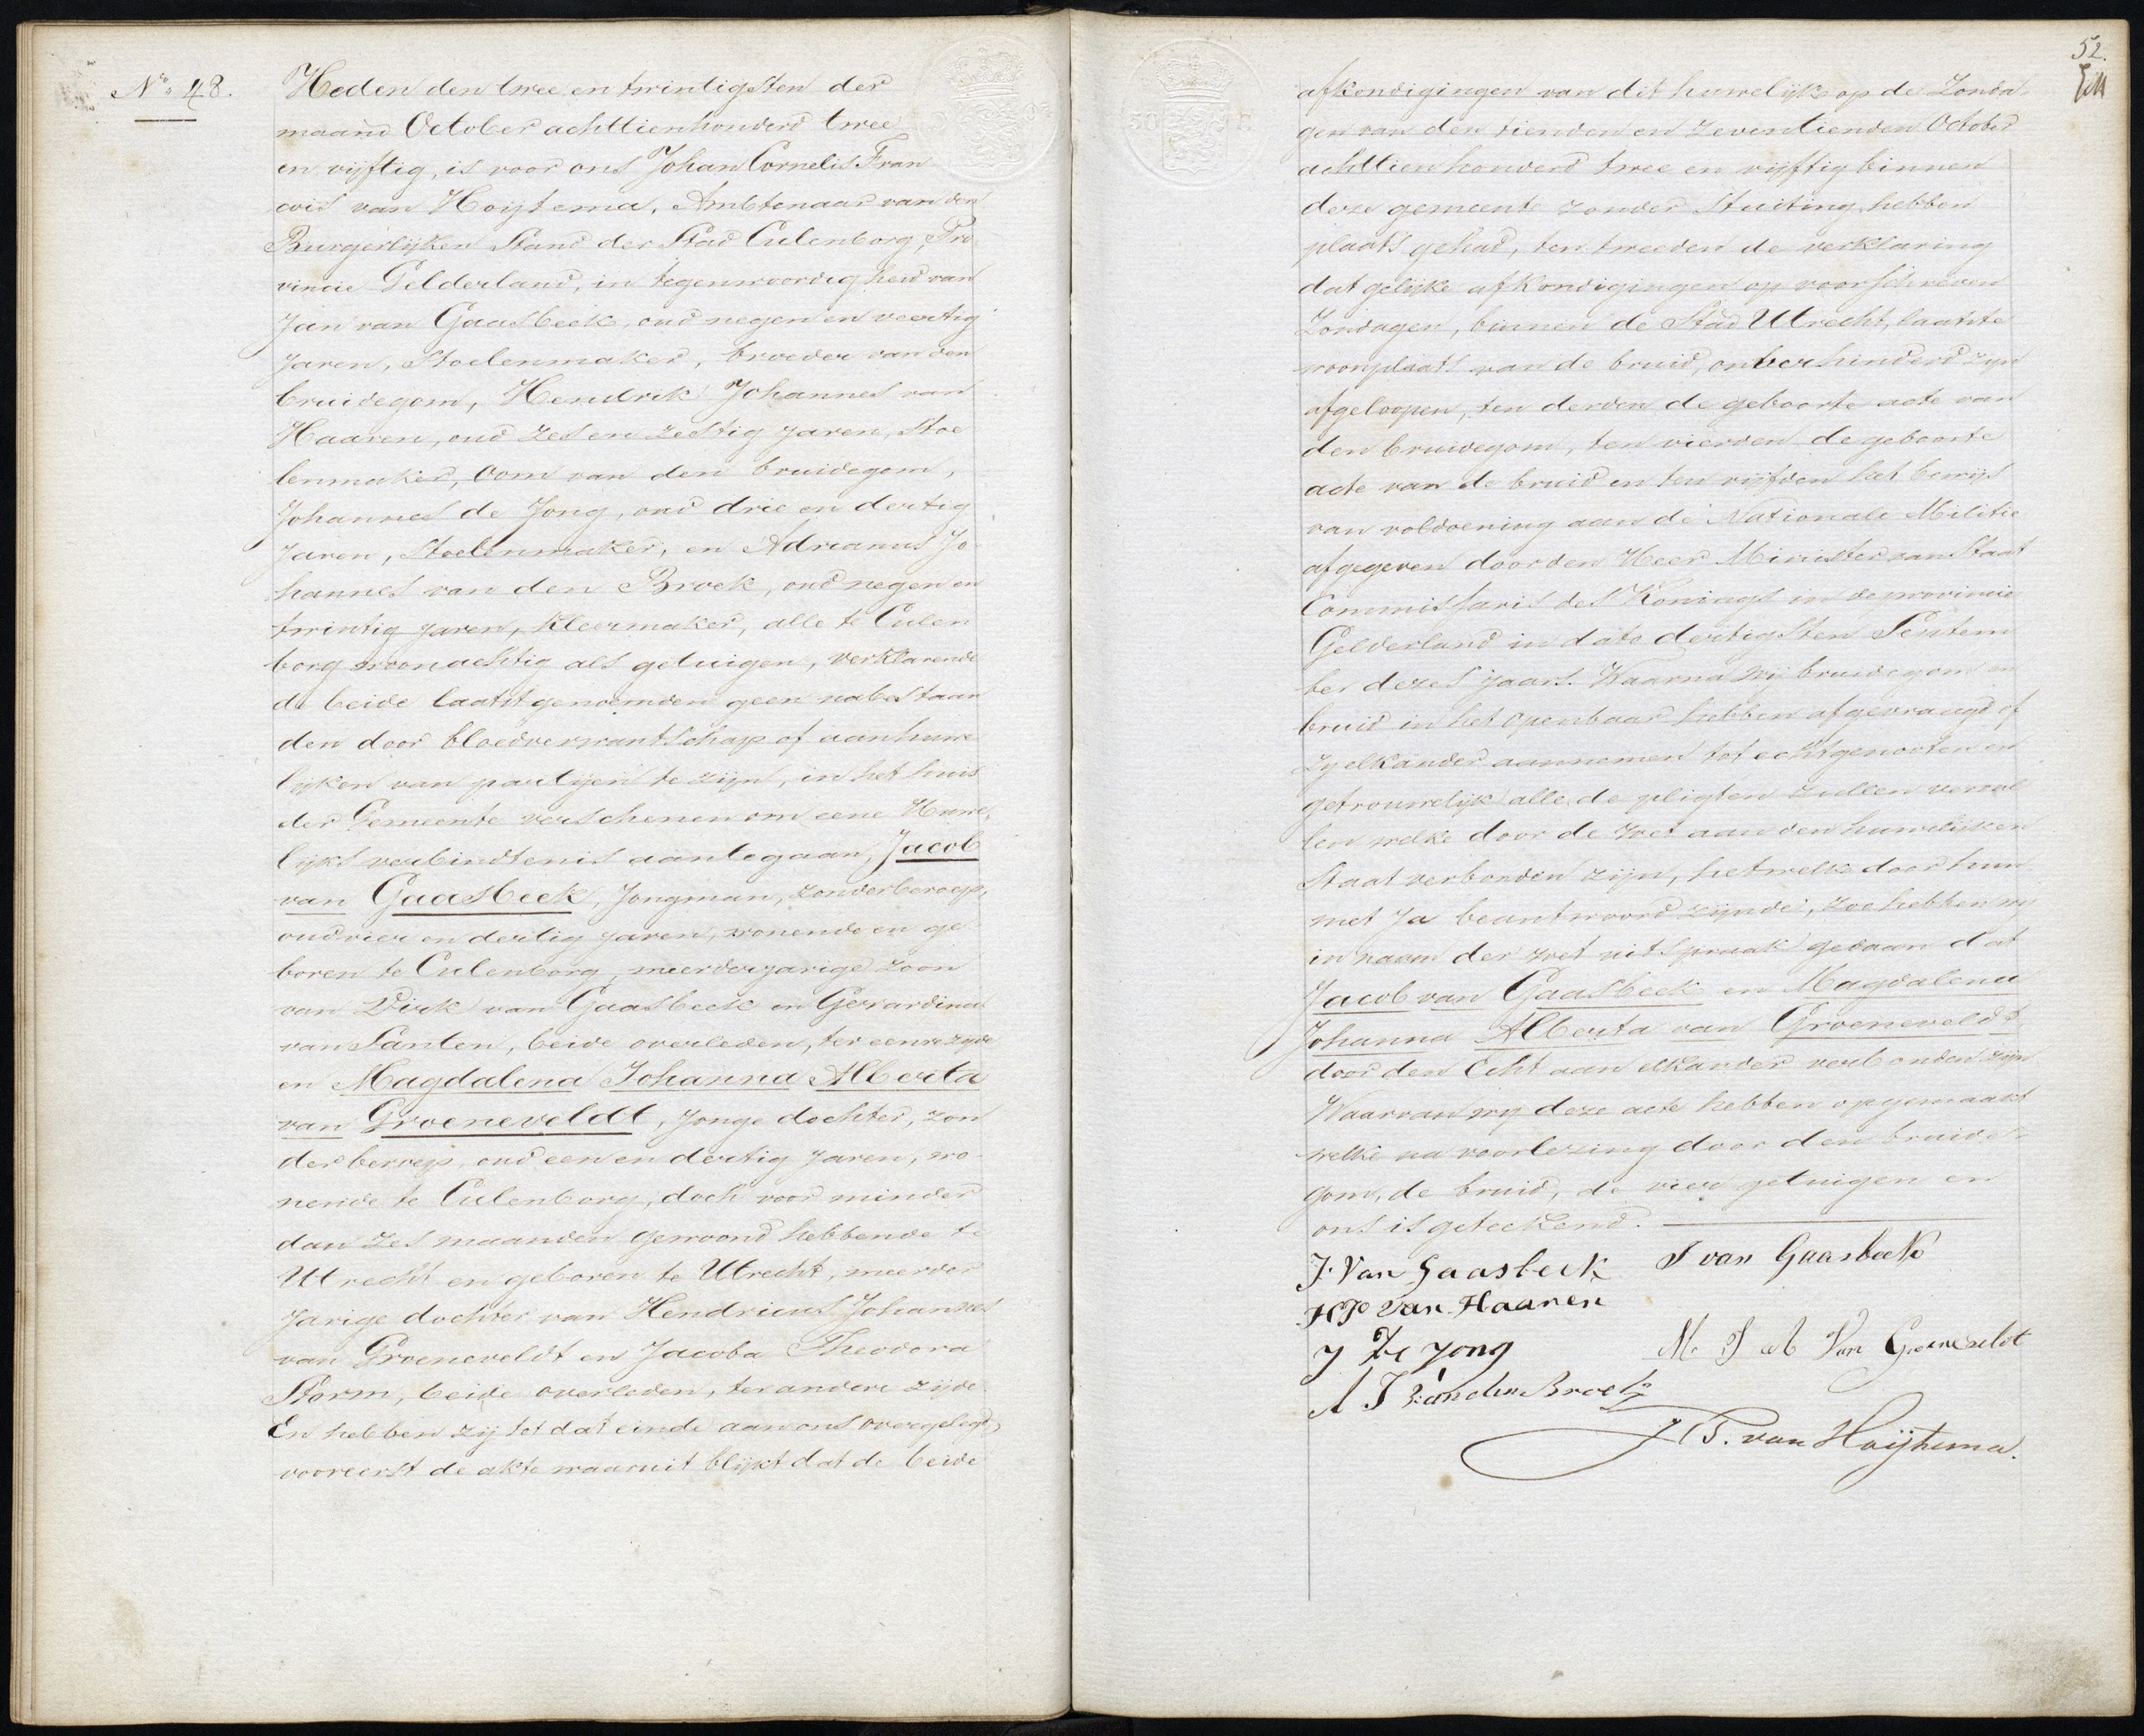 No. 48.
Heden den twee en twintigsten der
maand October achttienhonderd twee
en vijftig, is voor ons Johan Cornelis Fran
cois van Hoytema, Ambtenaar van den
Burgerlijken Stand der Stad Culenborg, Pro
vincie Gelderland, in tegenwoordigheid van
Jan van Gaasbeek, oud negen en veertig
jaren, Stoelenmaker, broeder van den
bruidegom, Hendrik Johannes van
Haaren, oud zes en zestig jaren, Stoe
lenmaker, Oom van den bruidegom,
Johannes de Jong, oud drie en dertig
Jaren, Stoelenmaker, en Adrianus Jo
hannes van den Broek, oud negen en
twintig jaren, Kleermaker, alle te Culen
borg woonachtig als getuigen, verklarende
de beide laatstgenoemden geen nabestaan
den door bloedverwantschap of aanhuwe
lijken van partijen te zijn, in het huis
der Gemeente verschenen om eene Huwe,
lijks verbindtenis aantegaan, Jacob
van Gaasbeek, Jongman, zonder beroep,
oud vier en dertig jaren, wonende en ge
boren te Culenborg, meerderjarige zoon
van Dirk van Gaasbeek en Gerardina
van Santen, beide overleden, ter eenre zijde
en Magdalena Johanna Alberta
van Groeneveldt, Jonge dochter, zon
der beroep, oud een en dertig jaren, wo
nende te Culenborg, doch voor minder
dan zes maanden gewoond hebbende te
Utrecht en geboren te Utrecht, meerder
jarige dochter van Hendricus Johannes
van Groeneveldt en Jacoba Theodora
Storm, beide overleden, ter andere zijde
En hebben zij tot dat einde aan ons overgelegd,
vooreerst de akte waaruit blijkt dat de beide
52.
afkondigingen van dit huwelijk op de Zonda,
gen van den tienden en zeventienden October
achttienhonderd twee en vijftig binnen
deze gemeente zonder Stuiting hebben
plaats gehad, ten tweeden de verklaring
dat gelijke afkondigingen op voorschreven
Zondagen, binnen de Stad Utrecht, laatste
woonplaats van de bruid, onverhinderd zijn
afgeloopen, ten derden de geboorte acte van
den bruidegom, ten vierden de geboorte
acte van de bruid en ten vijfden het bewijs
van voldoening aan de Nationale Militie
afgegeven door den Heer Minister van Staat
Commissaris des Konings in de provincie
Gelderland in dato dertigsten Septem
ber dezes jaars. Waarna wij bruidegom en
bruid in het openbaar hebben afgevraagd of
zij elkander aannemen tot echtgenooten en
getrouwelijk alle de pligten zullen vervul
len welke door de wet aan den huwelijken
Staat verbonden zijn, hetwelk door hun
met Ja beantwoord zijnde, zoo hebben wij
in naam der wet uitspraak gedaan dat
Jacob van Gaasbeek en Magdalena
Johanna Alberta van Groeneveldt
door den Echt aan elkander verbonden zijn
Waarvan wij deze acte hebben opgemaakt
welke na voorlezing door den bruide-
gom, de bruid, de vier getuigen en
ons is geteekend.
J. Van Gaasbeek J van Gaasbeek
HJ van Haaren
J De Jong M J A Van Groeneveldt
A J van den Broek
J C F. van Hoijtema.